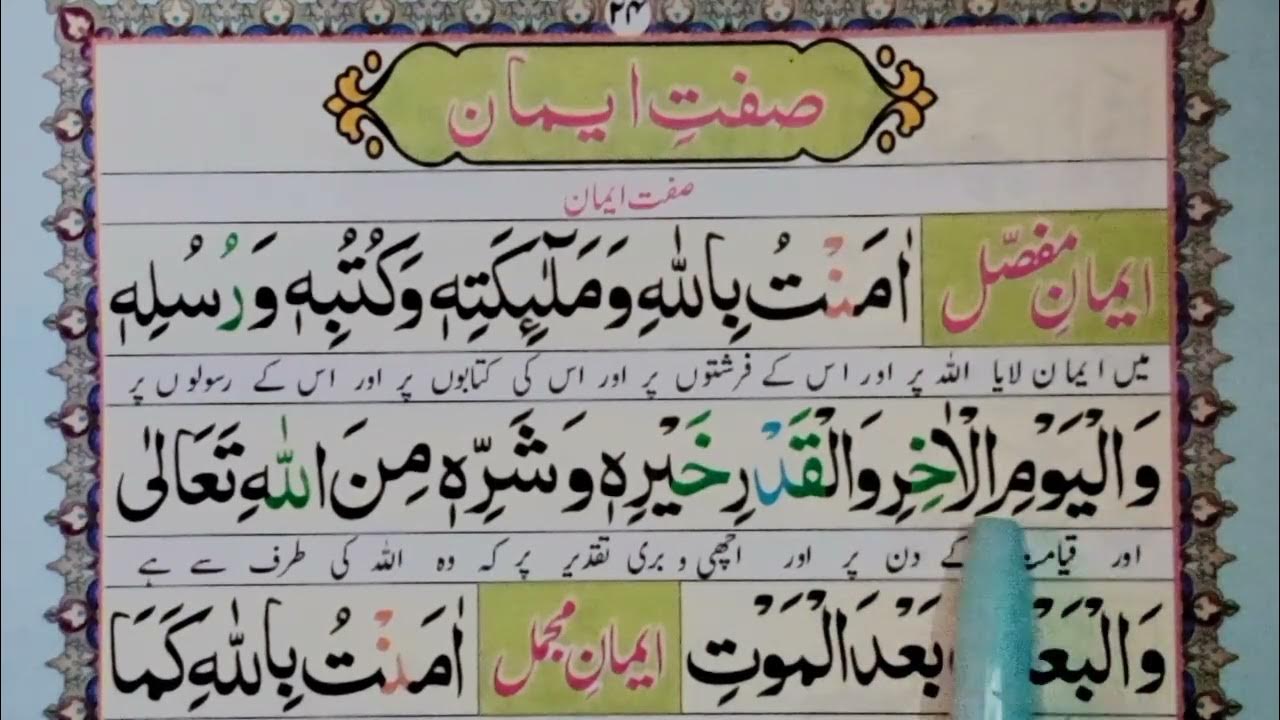 ۲۴
صفتِ ایمان
صفت ایمان
ایمانِ مفصّل اٰمَنْتُ بِاللّٰهِ وَمَلٰٓئِكَتِهٖ وَكُتُبِهٖ وَرُسُلِهٖ
میں ایمان لایا اللہ پر اور اس کے فرشتوں پر اور اس کی کتابوں پر اور اس کے رسولوں پر
وَالْيَوْمِ الْاٰخِرِ وَالْقَدْرِ خَيْرِهٖ وَشَرِّهٖ مِنَ اللّٰهِ تَعَالٰى
اور کے دن پر اور اچھی و بری تقدیر پر کہ وہ اللہ کی طرف سے ہے
بَعْدَ الْمَوْتِ ایمانِ مجمل اٰمَنْتُ بِاللّٰهِ كَمَا